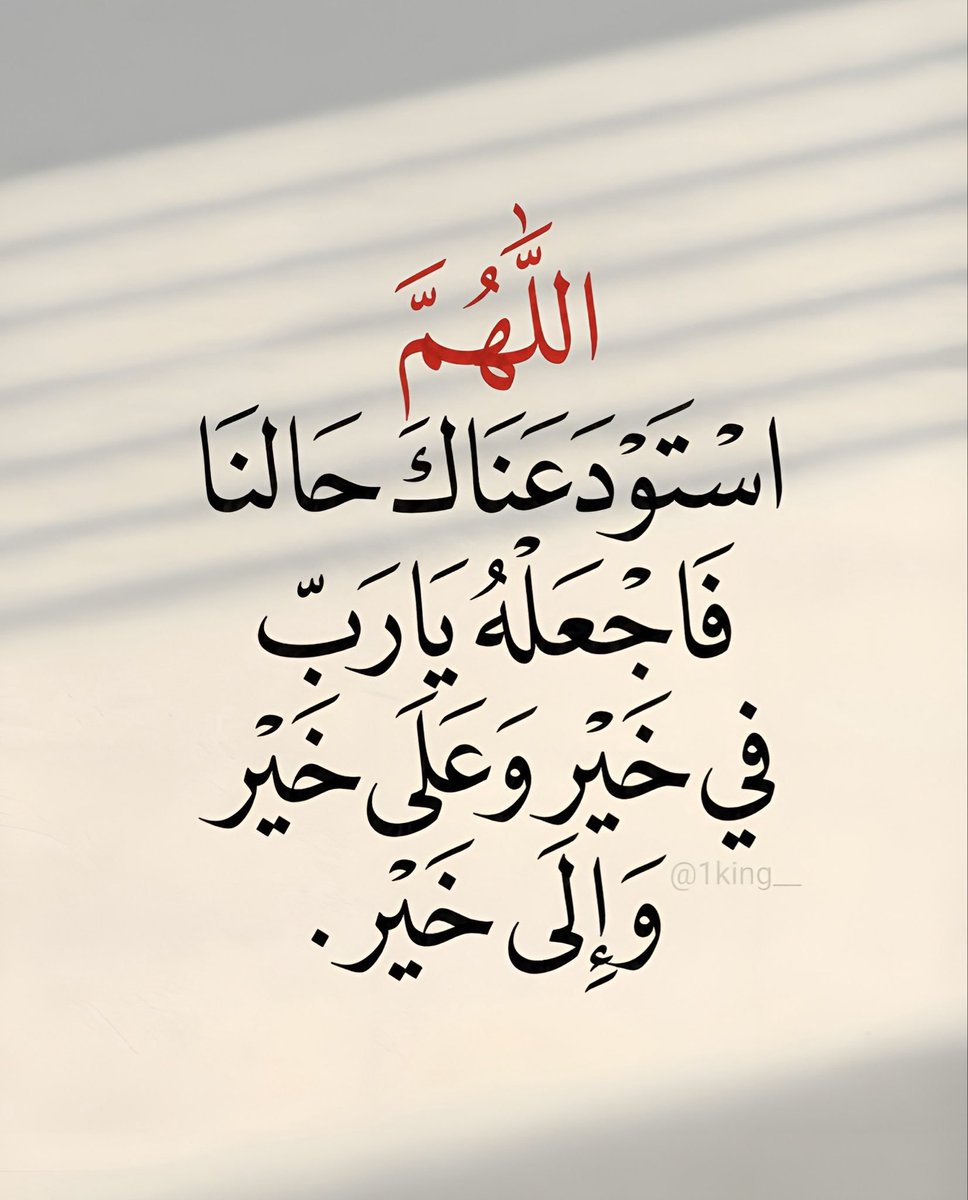 اللَّهُمَّ
اسْتَوْدَعَنَاكَ حَالنَا
فَاجْعَلْهُ يَارَبّ
في خَيْر وَعَلَى خَيْر
وَإِلَى خَيْر.
@1king__